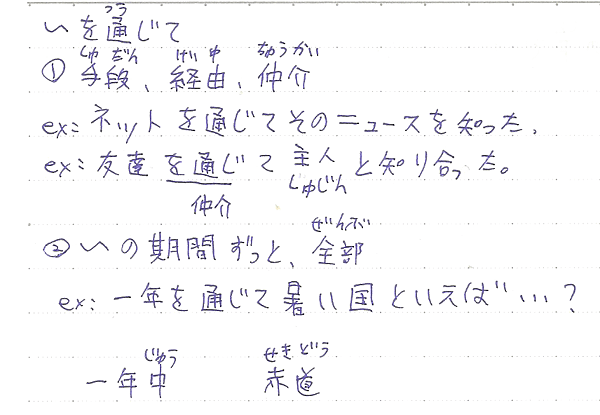 つう
～を通じて
しゅだん けいゆ ちゅうかい
① 手段、経由、仲介
ex: ネットを通じてそのニュースを知った.
ex: 友達を通じて主人と知り合った。
しゅじん
仲介
ぜんぶ
② ～の期間ずっと、全部
ex: 一年を通じて暑い国といえば…?
じゅう せきどう
一年中 赤道